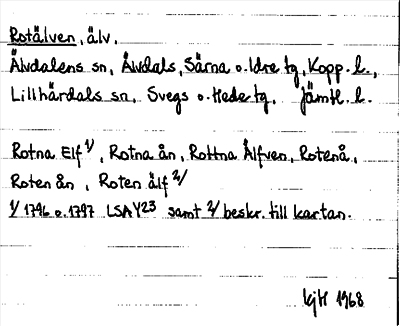 Rotälven, älv.
Älvdalens sn, Älvdals, Särna o. Idre tg, Kopp. l.,
Lillhärdals sn, Svegs o. Hede tg, Jämtl. l.
Rotna Elf 1/, Rotna ån, Rottna Älfven, Rotenå,
Roten ån, Roten älf 2/
1/ 1796 o. 1797 LSA Y23 samt 2/ beskr. till kartan.
1968